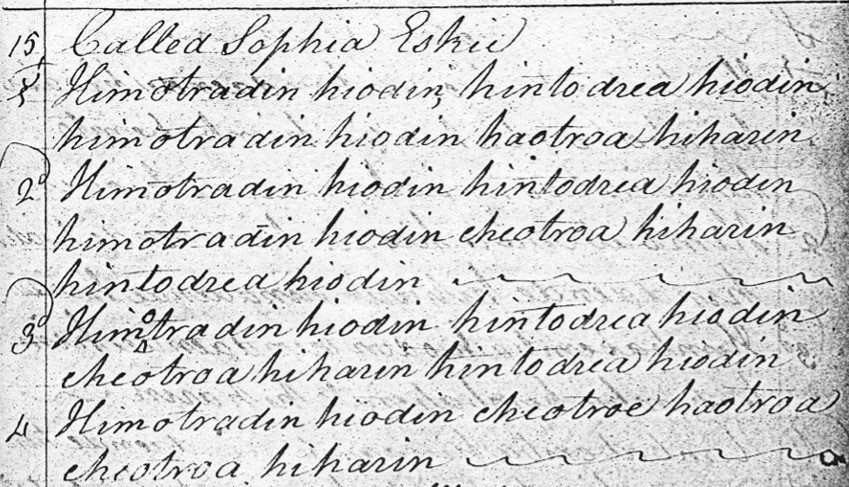 15 Called Sophia Eskie
1 Himotradin hiodin, hintodrea hiodin,
himotradin hiodin haotroa hiharin
2d Himotradin hiodin hintodrea hiodin
himotradin hiodin cheotroa hiharin
hintodrea hiodin
3d Himotradin hiodin hintodrea hiodin
cheotroa hiharin hintodrea hiodin
4 Himotradin hiodin cheotroe haotroa
cheotroa hiharin